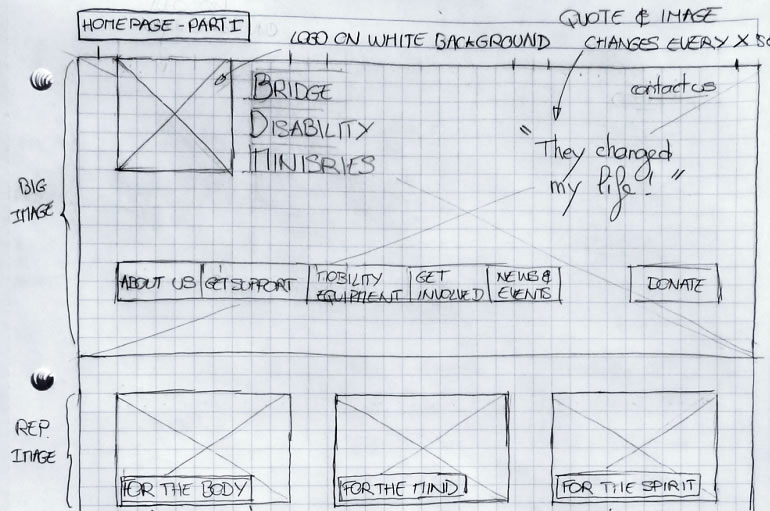 HOMEPAGE - PART I
LOGO ON WHITE BACKGROUND
QUOTE & IMAGE
CHANGES EVERY X
contact us
BRIDGE
DISABILITY
MINISRIES
" They changed
my life! "
BIG
IMAGE
ABOUT US
GET SUPPORT
MOBILITY
EQUIPMENT
GET
INVOLVED
NEWS &
EVENTS
DONATE
REP.
IMAGE
FOR THE BODY
FOR THE MIND
FOR THE SPIRIT